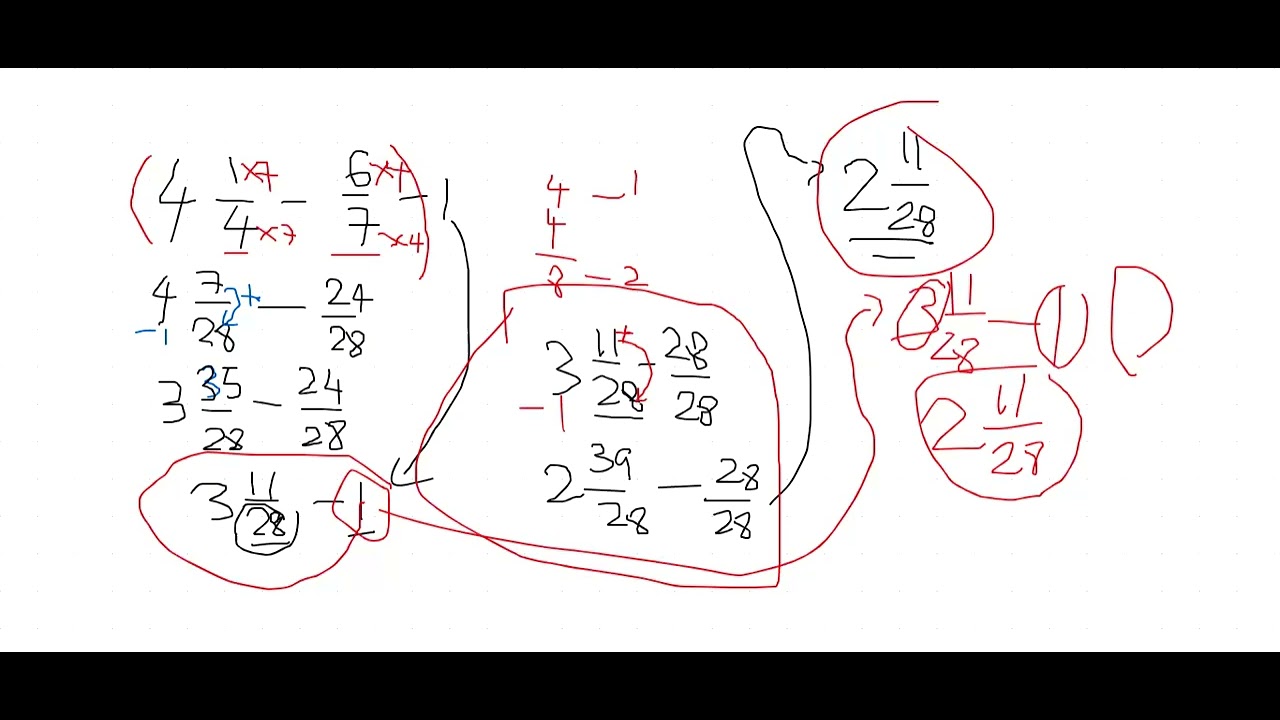 (4 1×7/4×7 − 6×4/7×4) − 1
4 7/28 − 24/28
−1 +
3 35/28 − 24/28
3 11/28 − 1
4 − 1
4
8 − 2
3 11/28 − 28/28
−1 +
2 39/28 − 28/28
2 11/28
3 11/28 − 1
2 11/28